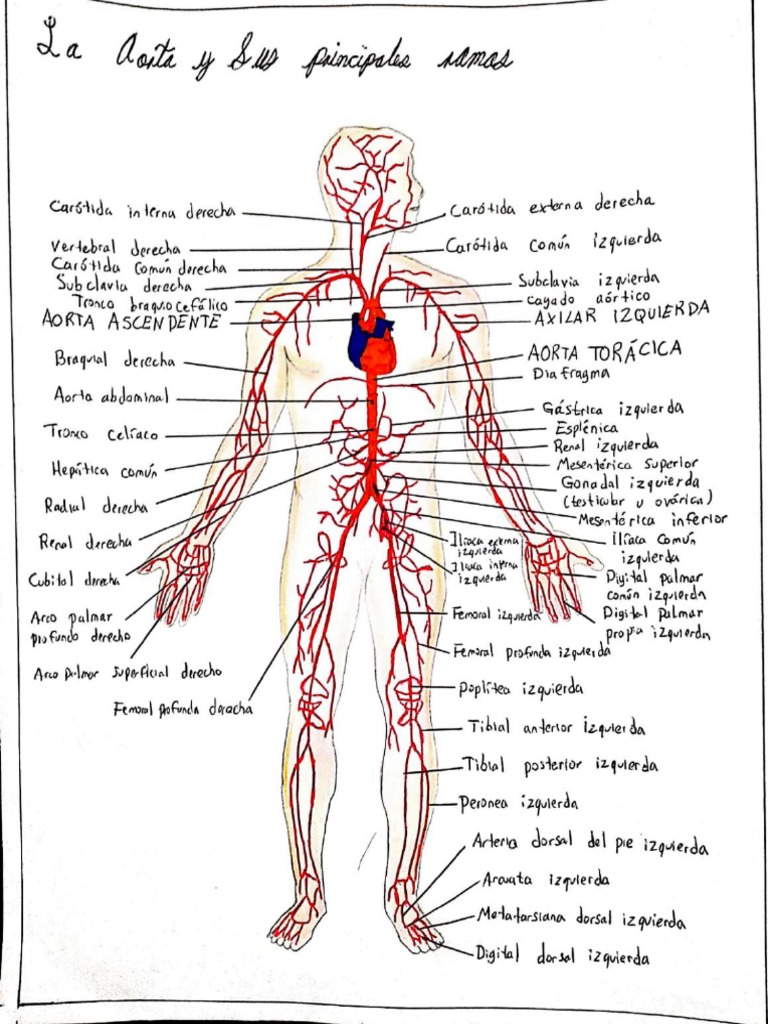 La Aorta y Sus principales ramos
Carótida interna derecha
Vertebral derecha
Carótida Común derecha
Subclavia derecha
Tronco braquiocefálico
AORTA ASCENDENTE
Braquial derecha
Aorta abdominal
Tronco Celíaco
Hepática común
Radial derecha
Renal derecha
Cubital derecha
Arco palmar
profundo derecho
Arco palmar superficial derecho
Femoral profunda derecha
Carótida externa derecha
Carótida común izquierda
Subclavia izquierda
cagado aórtico
AXILAR IZQUIERDA
AORTA TORÁCICA
Diafragma
Gástrica izquierda
Esplénica
Renal izquierda
Mesentérica Superior
Gonadal izquierda
(testicular u ovárica)
Mesentérica inferior
Iliaca externa
izquierda
Iliaca interna
izquierda
ilíaca común
izquierda
Digital palmar
común izquierda
Digital palmar
propia izquierda
Femoral izquierda
Femoral profunda izquierda
Poplítea izquierda
Tibial anterior izquierda
Tibial posterior izquierda
Peronea izquierda
Arteria dorsal del pie izquierda
Arcuata izquierda
Metatarsiana dorsal izquierda
Digital dorsal izquierda